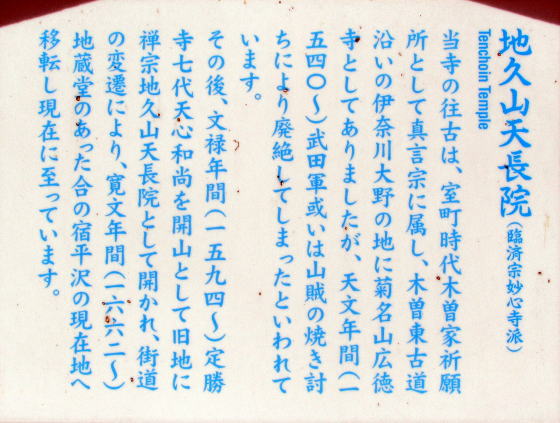 地久山天長院（臨済宗妙心寺派）
Tenchoin Temple
当寺の往古は、室町時代木曽家祈願
所として真言宗に属し、木曽東古道
沿いの伊奈川大野の地に菊名山広徳
寺としてありましたが、天文年間（一
五四〇〜）武田軍或いは山賊の焼き討
ちにより廃絶してしまったといわれて
います。
その後、文禄年間（一五九四〜）定勝
寺七代天心和尚を開山として旧地に
禅宗地久山天長院として開かれ、街道
の変遷により、寛文年間（一六六二〜）
地蔵堂のあった合の宿平沢の現在地へ
移転し現在に至っています。